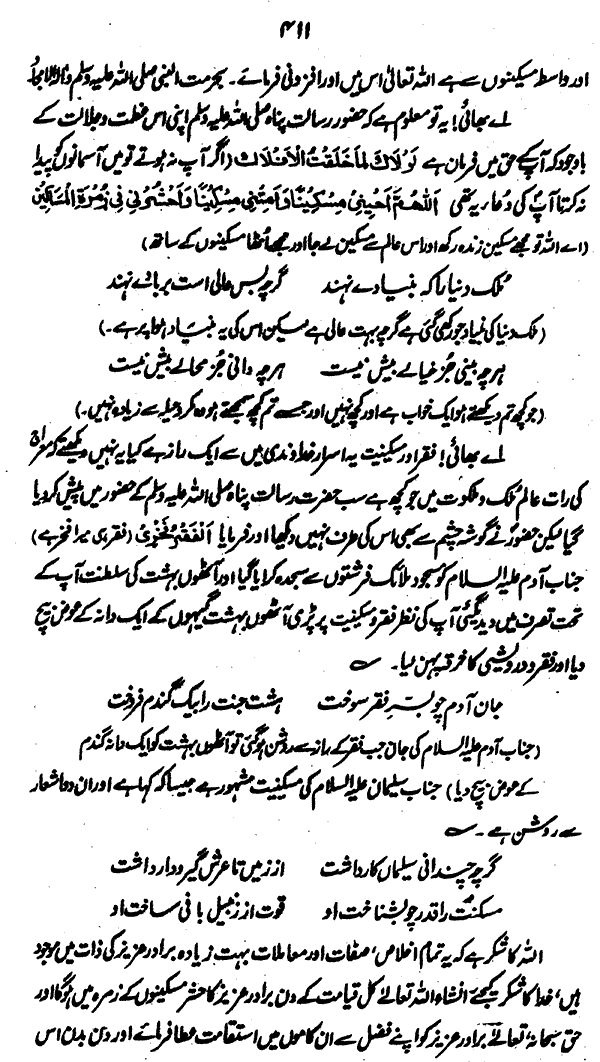 ۴۱۱
اور واسطہ مسکینوں سے ہے اللہ تعالیٰ اس میں اور افزونی فرمائے۔ بحرمت النبی صلی اللہ علیہ وسلم وآلہ الامجاد
اے بھائی! یہ تو معلوم ہے کہ حضور رسالت پناہ صلی اللہ علیہ وسلم اپنی اس عظمت و جلالت کے
باوجود کہ آپ کے حق میں فرمان ہے لَوْلَاكَ لَمَا خَلَقْتُ الْاَفْلَاكَ (اگر آپ نہ ہوتے تو میں آسمانوں کو پیدا
نہ کرتا) آپ کی دعا یہ تھی اَللّٰهُمَّ اَحْيِنِيْ مِسْكِيْنًا وَاَمِتْنِيْ مِسْكِيْنًا وَاحْشُرْنِيْ فِيْ زُمْرَةِ الْمَسَاكِيْنَ
(اے اللہ تو مجھے مسکین زندہ رکھ اور اس عالم سے مسکین لے جا اور مجھے اٹھا مسکینوں کے ساتھ)
ملک دنیا را کہ بنیادے نہند گرچہ بس عالی است بر بادے نہند
(ملک دنیا کی بنیاد جو رکھی گئی ہے گرچہ بہت عالی ہے لیکن اس کی یہ بنیاد ہوا پر ہے۔)
ہرچہ بینی جز خیالے بیش نیست ہرچہ دانی جز محالے بیش نیست
(جو کچھ تم دیکھتے ہو ایک خواب ہے اور کچھ نہیں اور جسے تم کچھ سمجھتے ہو وہ مکر و حیلہ سے زیادہ نہیں۔)
اے بھائی! فقر اور مسکینیت یہ اسرار خداوندی میں سے ایک راز ہے کیا یہ نہیں دیکھتے کہ معراج
کی رات عالم ملک و ملکوت میں جو کچھ ہے سب حضرت رسالت پناہ صلی اللہ علیہ وسلم کے حضور میں پیش کردیا
گیا لیکن حضورؐ نے گوشہ چشم سے بھی اس کی طرف نہیں دیکھا اور فرمایا اَلْفَقْرُ فَخْرِيْ (فقر ہی میرا فخر ہے)
جناب آدم علیہ السلام کو مسجود ملائک فرشتوں سے سجدہ کرایا گیا اور آٹھوں بہشت کی سلطنت آپ کے
تحت تصرف میں دیدی گئی آپ کی نظر فقر و مسکینیت پر پڑی آٹھوں بہشت گیہوں کے ایک دانہ کے عوض بیچ
دیا اور فقر و درویشی کا خرقہ پہن لیا۔
جان آدم چو بسرِ فقر سوخت ہشت جنت را بیک گندم فروخت
(جناب آدم علیہ السلام کی جان جب فقر کے راز سے روشن ہوگئی تو آٹھوں بہشت کو ایک دانہ گندم
کے عوض بیچ دیا) جناب سلیمان علیہ السلام کی مسکینیت مشہور ہے جیسا کہ کہا ہے اور ان دو اشعار
سے روشن ہے۔
گرچہ چندانی سلیماں کار داشت از زمیں تا عرش گیر و دار داشت
مسکنت را قدر چوں بشناخت او قوت از زنبیل بافی ساخت او
اللہ کا شکر ہے کہ یہ تمام اخلاص، صفات اور معاملات بہت زیادہ برادر عزیز کی ذات میں موجود
ہیں، خدا کا شکر کیجئے انشاء اللہ تعالےٰ کل قیامت کے دن برادر عزیز کا حشر مسکینوں کے زمرہ میں ہوگا اور
حق سبحانہٗ تعالےٰ برادر عزیز کو اپنے فضل سے ان کاموں میں استقامت عطا فرمائے اور دن بدن اس